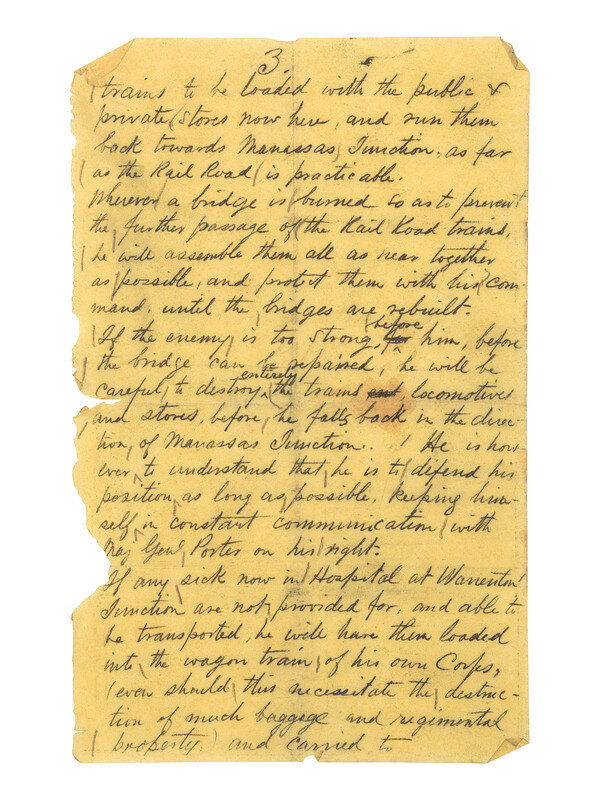 3.
trains to be loaded with the public &
private stores now here, and run them
back towards Manassas Junction, as far
as the Rail Road is practicable.
Wherever a bridge is burned so as to prevent
the further passage of the Rail Road trains,
he will assemble them all as near together
as possible, and protect them with his com-
mand, until the bridges are rebuilt.
If the enemy is too strong, for before him, before
the bridge can be repaired, he will be
careful to destroy entirely the trains and, locomotives
and stores, before he falls back in the direc-
tion of Manassas Junction. He is how-
ever to understand that he is to difend his
position as long as possible, keeping him-
self in constant communication with
Maj Genl Porter on his right.
If any sick now in Hospital at Warrenton
Junction are not provided for, and able to
be transported, he will have them loaded
into the wagon train of his own Corps,
(even should this necessitate the destruc-
tion of much baggage and regimental
property) and carried to